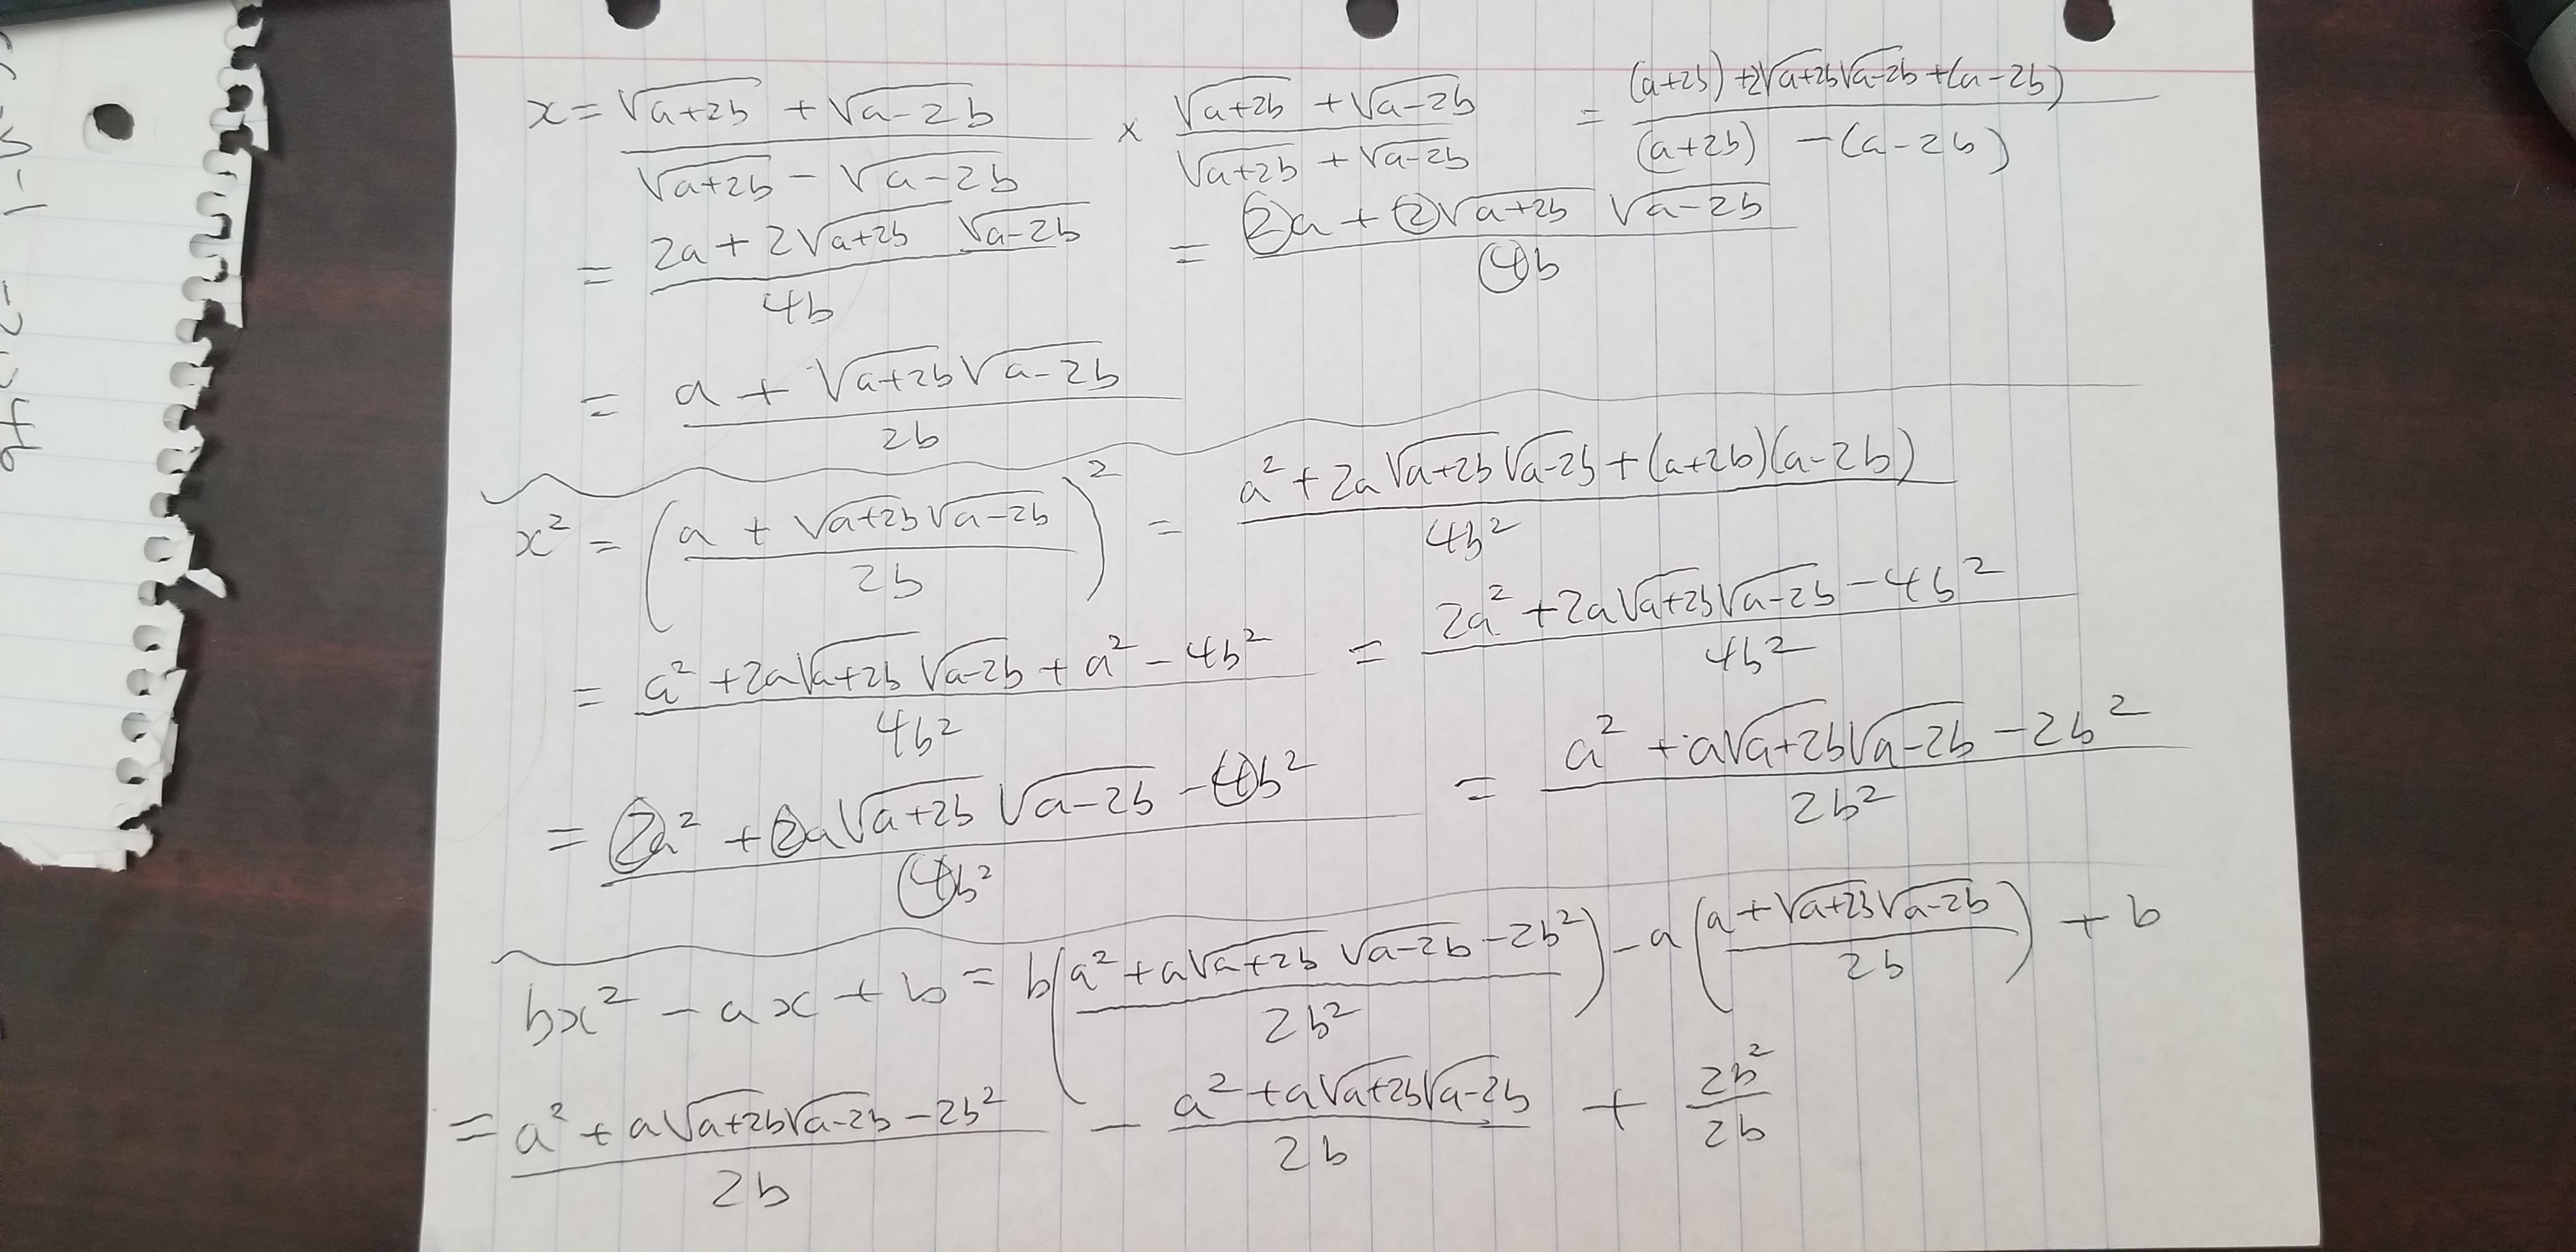 x = (√(a+2b) + √(a-2b))/(√(a+2b) - √(a-2b)) × (√(a+2b) + √(a-2b))/(√(a+2b) + √(a-2b)) = ((a+2b) + 2√(a+2b)√(a-2b) + (a-2b))/((a+2b) - (a-2b))
= (2a + 2√(a+2b) √(a-2b))/(4b) = (2a + 2√(a+2b) √(a-2b))/(4b)
= (a + √(a+2b)√(a-2b))/(2b)
x² = ((a + √(a+2b)√(a-2b))/(2b))² = (a² + 2a√(a+2b)√(a-2b) + (a+2b)(a-2b))/(4b²)
= (a² + 2a√(a+2b)√(a-2b) + a² - 4b²)/(4b²) = (2a² + 2a√(a+2b)√(a-2b) - 4b²)/(4b²)
= (2a² + 2a√(a+2b)√(a-2b) - 4b²)/(4b²) = (a² + a√(a+2b)√(a-2b) - 2b²)/(2b²)
bx² - ax + b = b((a² + a√(a+2b)√(a-2b) - 2b²)/(2b²)) - a((a + √(a+2b)√(a-2b))/(2b)) + b
= (a² + a√(a+2b)√(a-2b) - 2b²)/(2b) - (a² + a√(a+2b)√(a-2b))/(2b) + (2b²)/(2b)